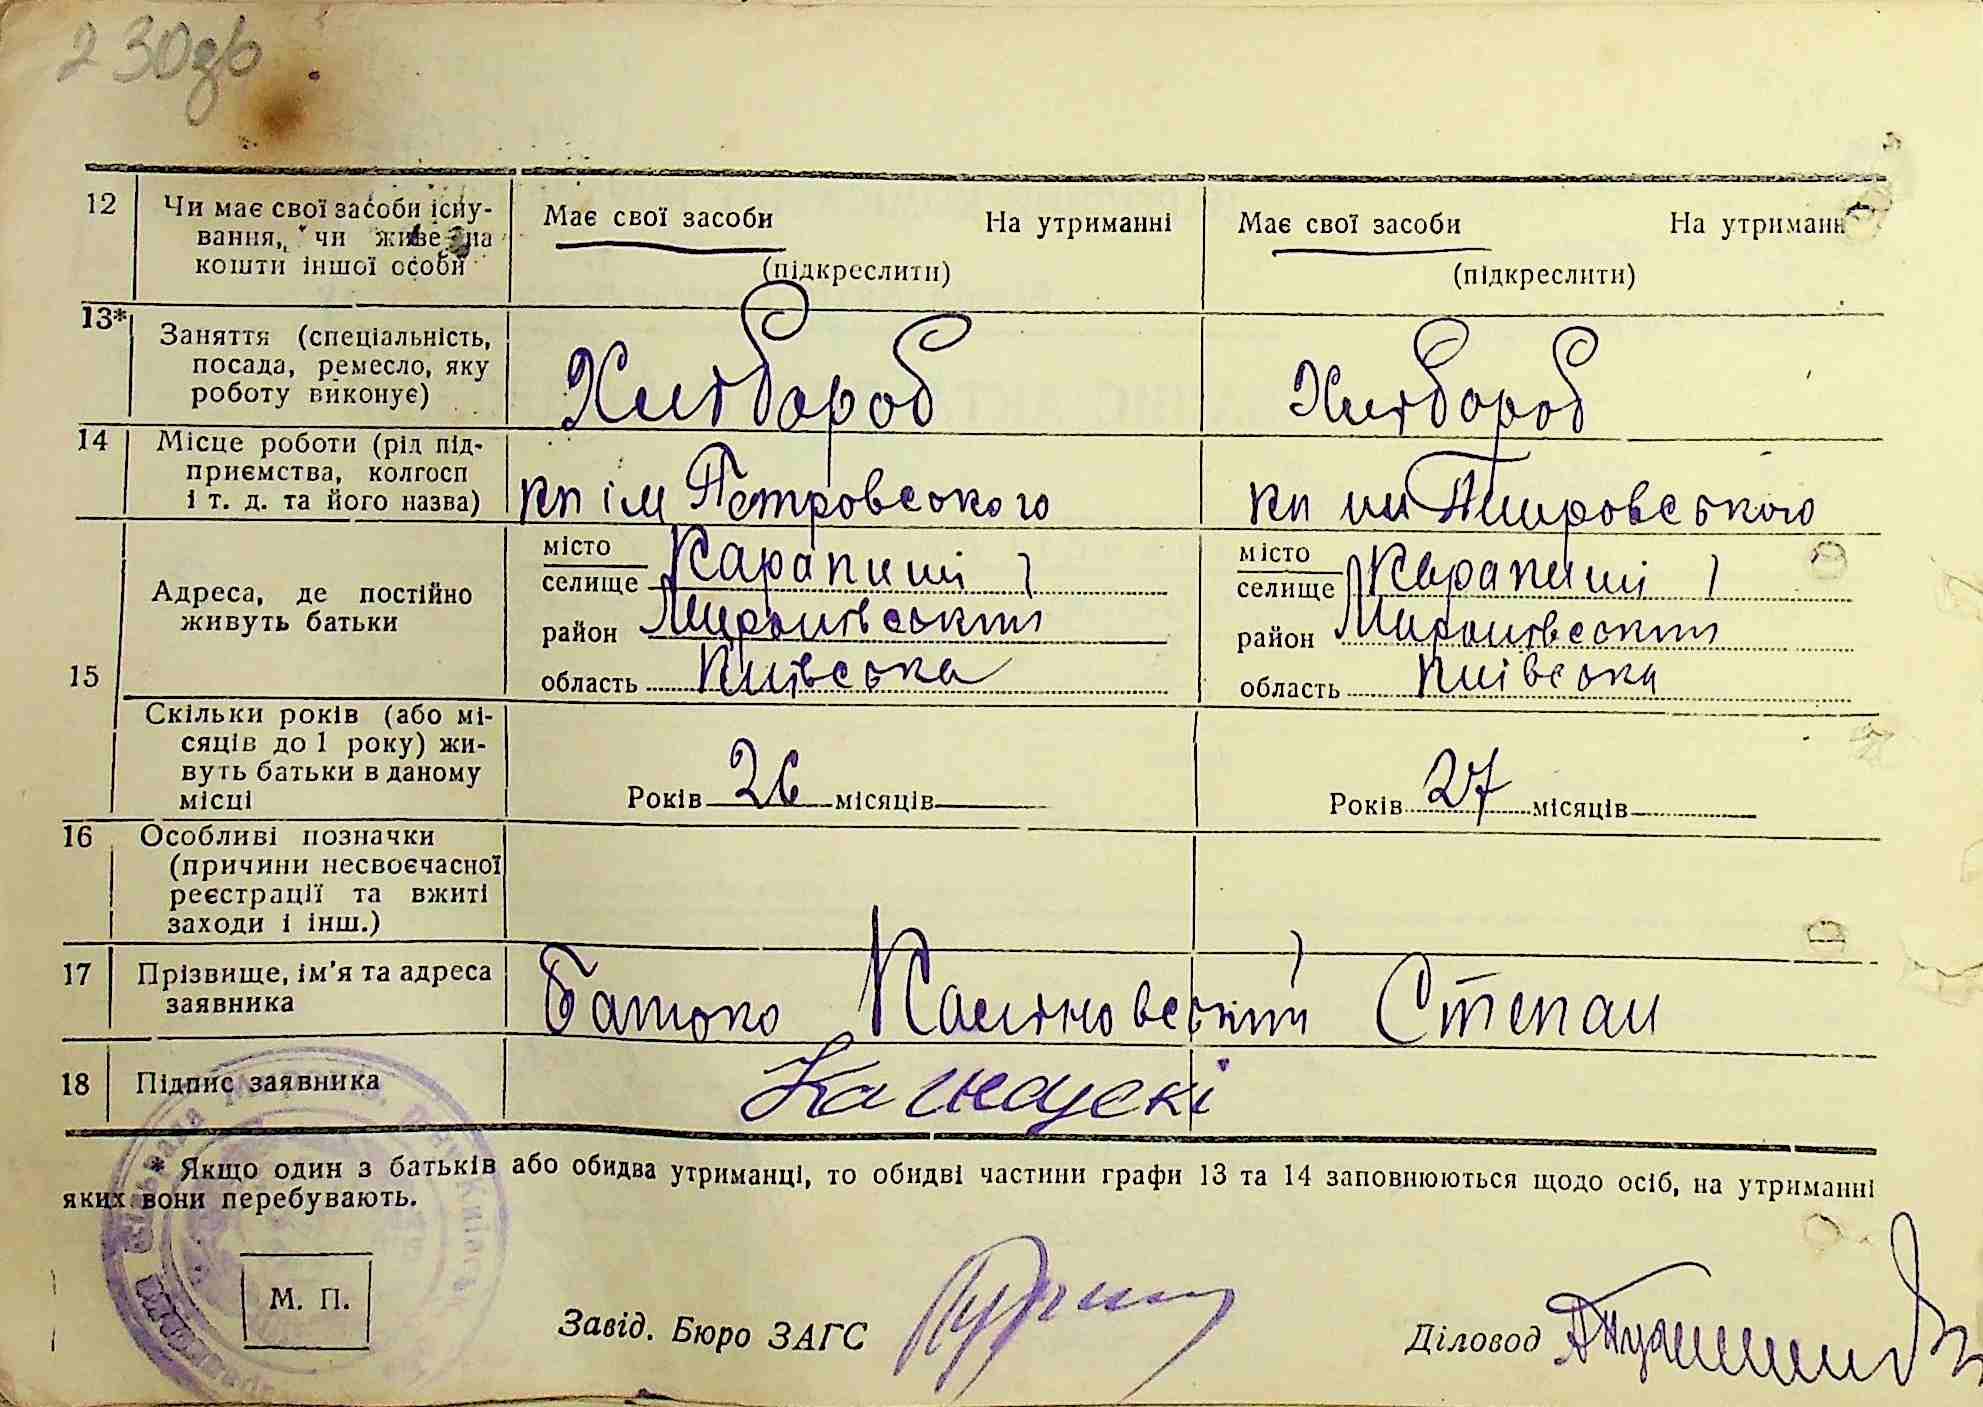 230зв
12 Чи має свої засоби існу-
вання, чи живе на
кошти іншої особи
Має свої засоби На утриманні
(підкреслити)
Має свої засоби На утриманн
(підкреслити)
13* Заняття (спеціальність,
посада, ремесло, яку
роботу виконує)
Хлібороб
Хлібороб
14 Місце роботи (рід під-
приємства, колгосп
і т. д. та його назва)
кп ім Петровського
кп ім Петровського
15 Адреса, де постійно
живуть батьки
місто
селище Карапиші
район Миронівський
область Київська
місто
селище Карапиші
район Миронівський
область Київська
Скільки років (або мі-
сяців до 1 року) жи-
вуть батьки в даному
місці
Років 26 місяців
Років 27 місяців
16 Особливі позначки
(причини несвоєчасної
реєстрації та вжиті
заходи і інш.)
17 Прізвище, ім'я та адреса
заявника
Батько Калиновський Степан
18 Підпис заявника
* Якщо один з батьків або обидва утриманці, то обидві частини графи 13 та 14 заповнюються щодо осіб, на утриманні
яких вони перебувають.
М. П.
Завід. Бюро ЗАГС
Діловод